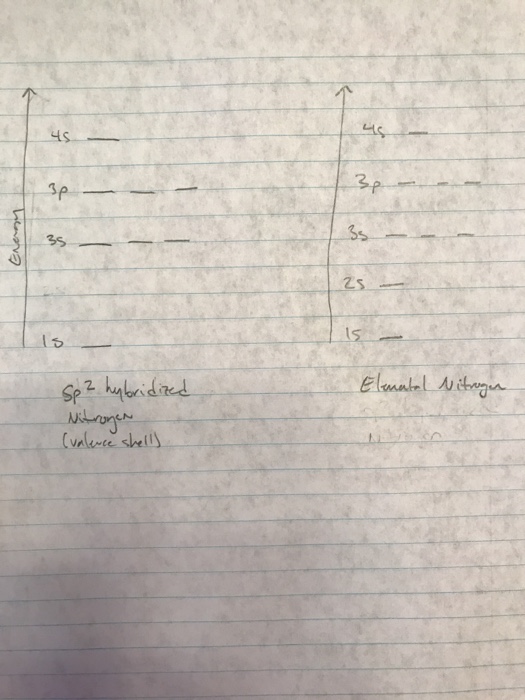 4s
3p
3s
1s
Energy
Sp² hybridized
Nitrogen
(valence shell)
4s
3p
3s
2s
1s
Elemental Nitrogen